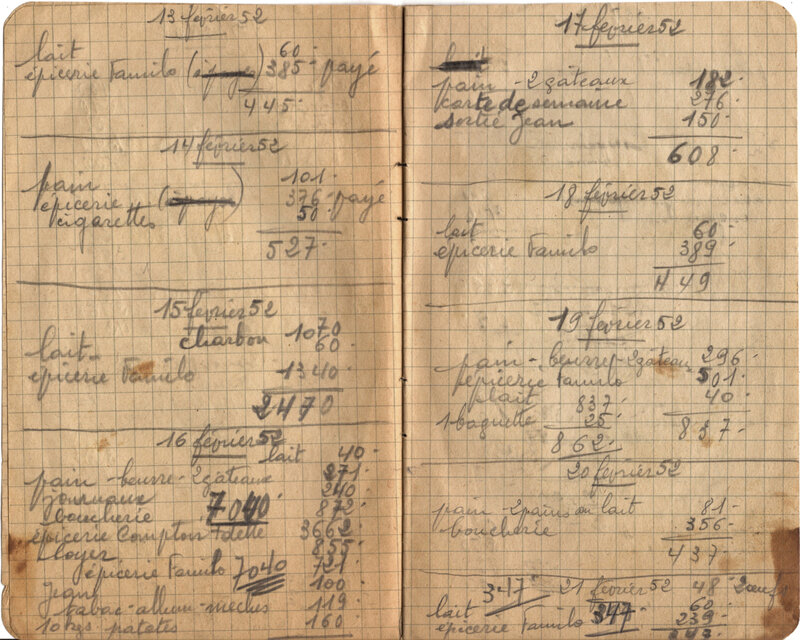 13 février 52
lait 60
épicerie Familo 385 payé
445
14 février 52
pain 101
épicerie 376 payé
cigarettes 50
527
15 février 52
charbon 1070
lait 60
épicerie Familo 1340
2470
16 février 52
lait 40
pain - beurre - 2 gâteaux 271
journaux 240
boucherie 7040 872
épicerie Comptoir 3662
loyer 855
épicerie Familo 7040 721
Jean 100
tabac - allum - meches 119
10 kgs patates 160
17 février 52
lait
pain - 2 gâteaux 182
carte de semaine 276
sortie Jean 150
608
18 février 52
lait 60
épicerie Familo 389
449
19 février 52
pain - beurre - 2 gâteaux 296
épicerie Familo 501
lait 837 40
1 baguette 25 837
862
20 février 52
pain - 2 pains au lait 81
boucherie 356
437
347 21 février 52 48 2 oeufs
lait 60
épicerie Familo 347 239